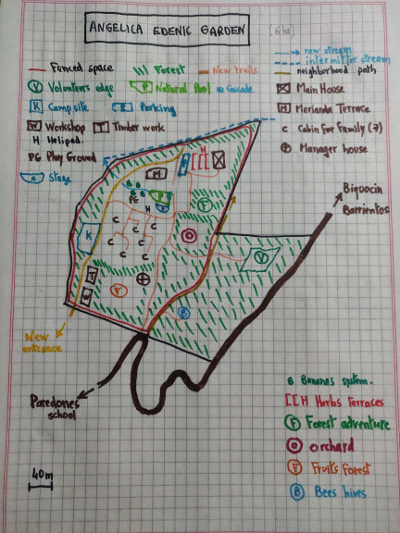 ANGELICA EDENIC GARDEN (6ha)
new stream
intermitter stream
Fenced space
Forest
New trails
neighborhood path
V Volonteers edge
P Natural Pool
Cascade
Main House
K Camp site
Parking
M Merianda Terrace
W Workshop
T Timber work
C Cabin for Family (7)
H Helipad
Manager house
PG Play Ground
Stage
Biquocin
Barrientos
M
P
PG
H
F
C
C
C
C
C
C
C
K
V
F
B
New
entrance
Paredones
school
B Bananas system.
H Herbs Terraces
F Forest adventure
Orchard
F Fruits Forest
B Bees hives
40m